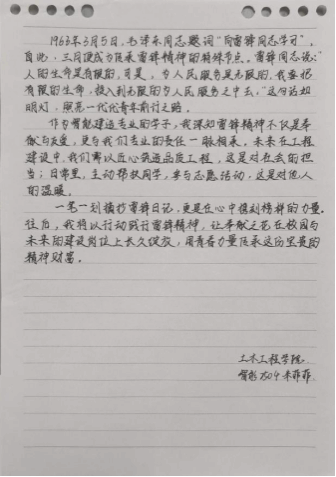 1963年3月5日,毛泽东同志题词“向雷锋同志学习”。
自此,三月便成为传承雷锋精神的特殊节点。雷锋同志说:“
人的生命是有限的,可是,为人民服务是无限的,我要把
有限的生命,投入到无限的为人民服务之中去。”这句话如
明灯,照亮一代代青年前行之路。
作为智能建造专业的学子,我深知雷锋精神不仅是奉
献与友爱,更与我们专业的责任一脉相承。未来在工程
建设中,我们需以匠心筑造品质工程,这是对社会的担
当;日常里,主动帮扶同学,参与志愿活动,这是对他人
的温暖。
一笔一划摘抄雷锋日记,更是在心中镌刻榜样的力量。
往后,我将以行动践行雷锋精神,让奉献之花在校园与
未来的建设岗位上长久绽放,用青春力量传承这份宝贵的
精神财富。
土木工程学院
智能2504 朱菲菲